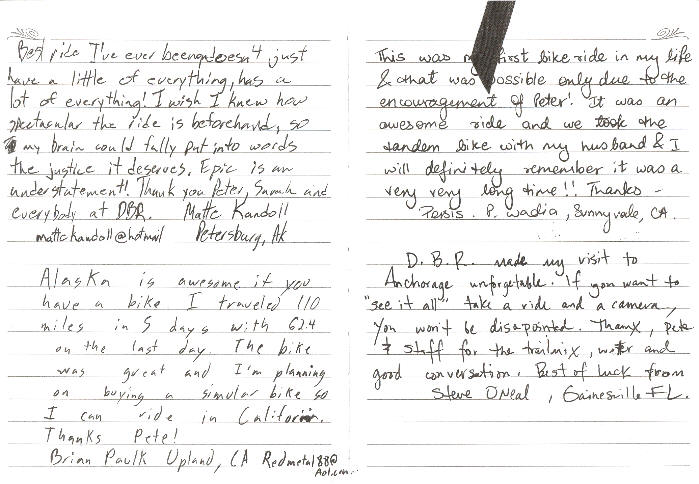 Best ride I've ever been on doesn't just
have a little of everything, has a
lot of everything! I wish I knew how
spectacular the ride is beforehand, so
my brain could fully put into words
the justice it deserves. Epic is an
understatement! Thank you Peter, Sarah and
everybody at DBR. Matte Kandoll
mattekandoll@hotmail Petersburg, AK
Alaska is awesome if you
have a bike I traveled 110
miles in 5 days with 62.4
on the last day. The bike
was great and I'm planning
on buying a simular bike so
I can ride in California.
Thanks Pete!
Brian Paulk Upland, CA Redmetal88@
Aol.com
This was my first bike ride in my life
& that was possible only due to the
encouragement of Peter! It was an
awesome ride and we took the
tandem bike with my husband & I
will definitely remember it was a
very very long time!! Thanks -
Persis. P. Wadia, Sunnyvale, CA.
D.B.R. made my visit to
Anchorage unforgetable. If you want to
"see it all" take a ride and a camera,
you won't be disapointed. Thanx, Pete
& staff for the trailmix, water and
good conversation. Best of luck from
Steve ONeal, Gainesville FL.